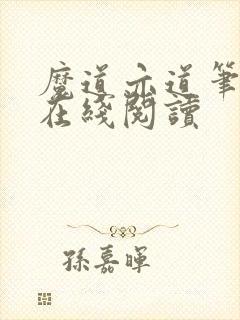 魔道亦道 笔
在綫閱讀
孫嘉暉